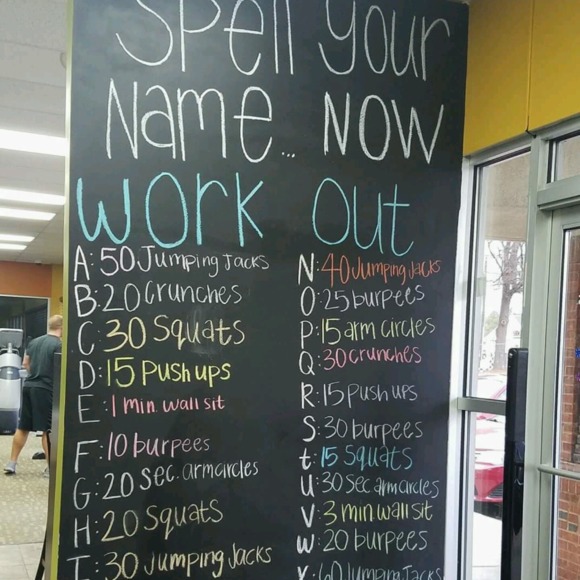 Spell your
Name... Now
Work Out
A: 50 Jumping Jacks
B: 20 Crunches
C: 30 Squats
D: 15 Push ups
E: 1 min. wall sit
F: 10 burpees
G: 20 Sec. arm circles
H: 20 Squats
I: 30 Jumping Jacks
N: 40 Jumping Jacks
O: 25 burpees
P: 15 arm circles
Q: 30 crunches
R: 15 Push ups
S: 30 burpees
t: 15 Squats
U: 30 Sec arm circles
V: 3 min. wall sit
W: 20 burpees
X: 60 Jumping Jacks